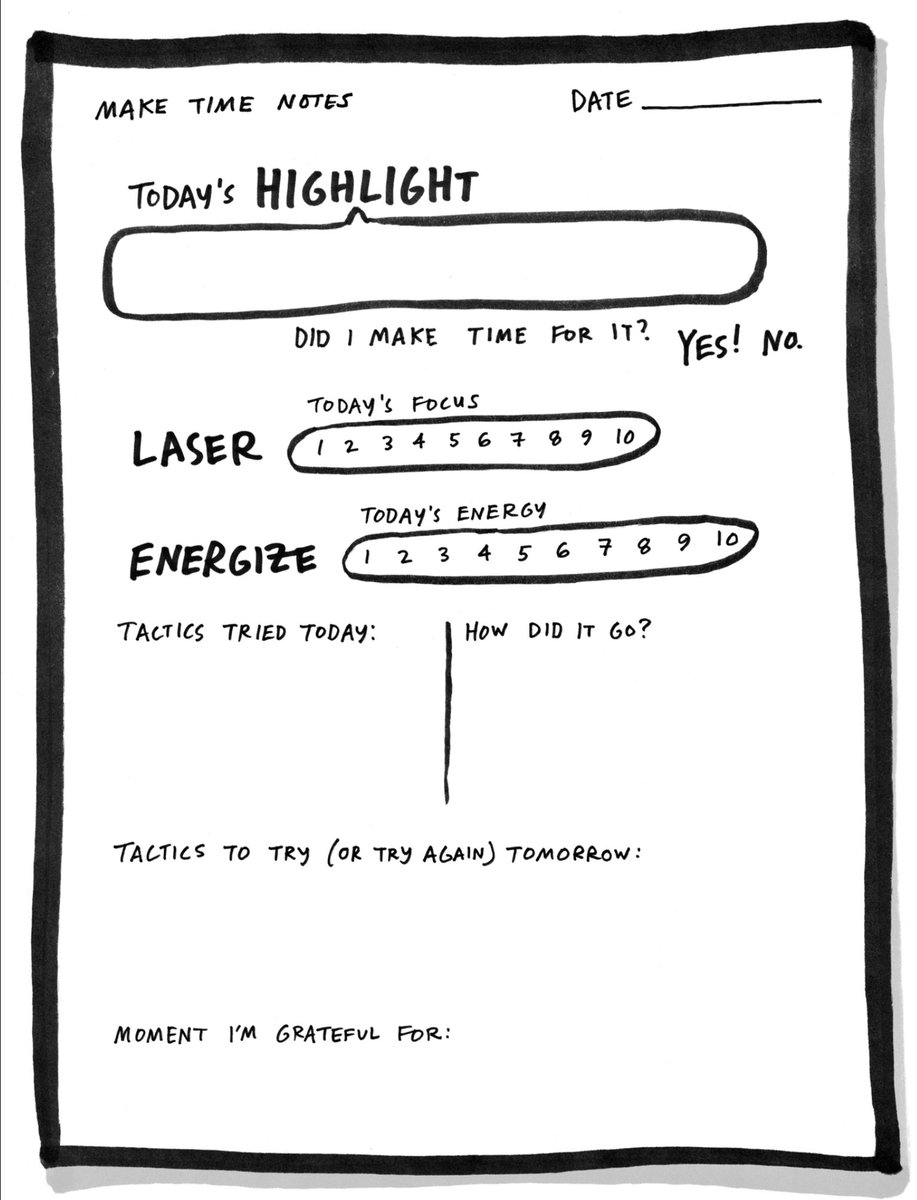 MAKE TIME NOTES
DATE
TODAY'S HIGHLIGHT
DID I MAKE TIME FOR IT? YES! NO.
TODAY'S FOCUS
LASER 1 2 3 4 5 6 7 8 9 10
TODAY'S ENERGY
ENERGIZE 1 2 3 4 5 6 7 8 9 10
TACTICS TRIED TODAY: HOW DID IT GO?
TACTICS TO TRY (OR TRY AGAIN) TOMORROW:
MOMENT I'M GRATEFUL FOR: